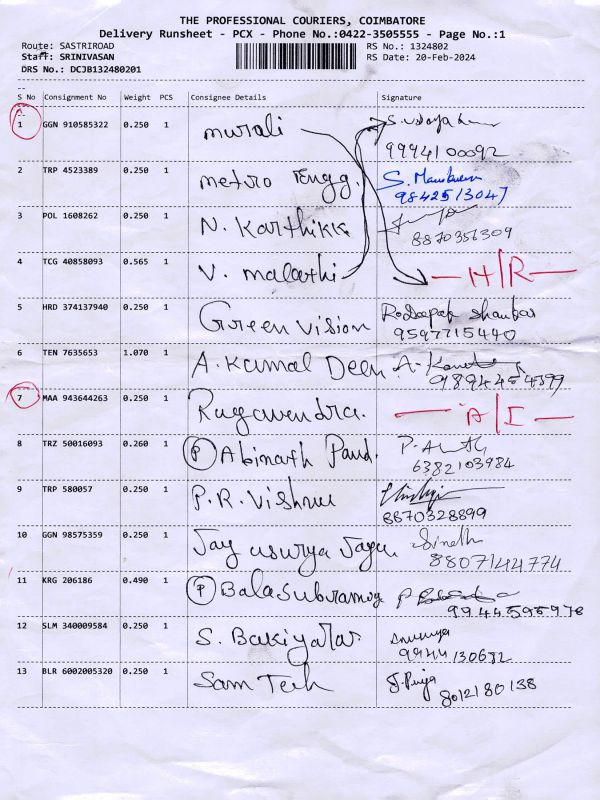 THE PROFESSIONAL COURIERS, COIMBATORE
Delivery Runsheet - PCX - Phone No.:0422-3505555 - Page No.:1
Route: SASTRIROAD RS No.: 1324802
Staff: SRINIVASAN RS Date: 20-Feb-2024
DRS No.: DCJB132480201
S No Consignment No Weight PCS Consignee Details Signature
1 GGN 910585322 0.250 1 murali
9994100092
2 TRP 4523389 0.250 1 metro Engg. S.
9842513047
3 POL 1608262 0.250 1 N. Karthikk
8870356309
4 TCG 40858093 0.565 1 V. malathi H/R
5 HRD 374137940 0.250 1 Green vision Shankar
9597715440
6 TEN 7635653 1.070 1 A. Kamal Deen A.
9894454399
7 MAA 943644263 0.250 1 Ragavendra. A/I
8 TRZ 50016093 0.260 1 P Abinath Pand. P.
6382103984
9 TRP 580057 0.250 1 P.R. Vishnu
8870328899
10 GGN 98575359 0.250 1 Jay
8807144774
11 KRG 206186 0.490 1 P P
9944595978
12 SLM 340009584 0.250 1 S. Bakiyalar
9944130692
13 BLR 6002005320 0.250 1 Sam Tech J. Priya
8012180138